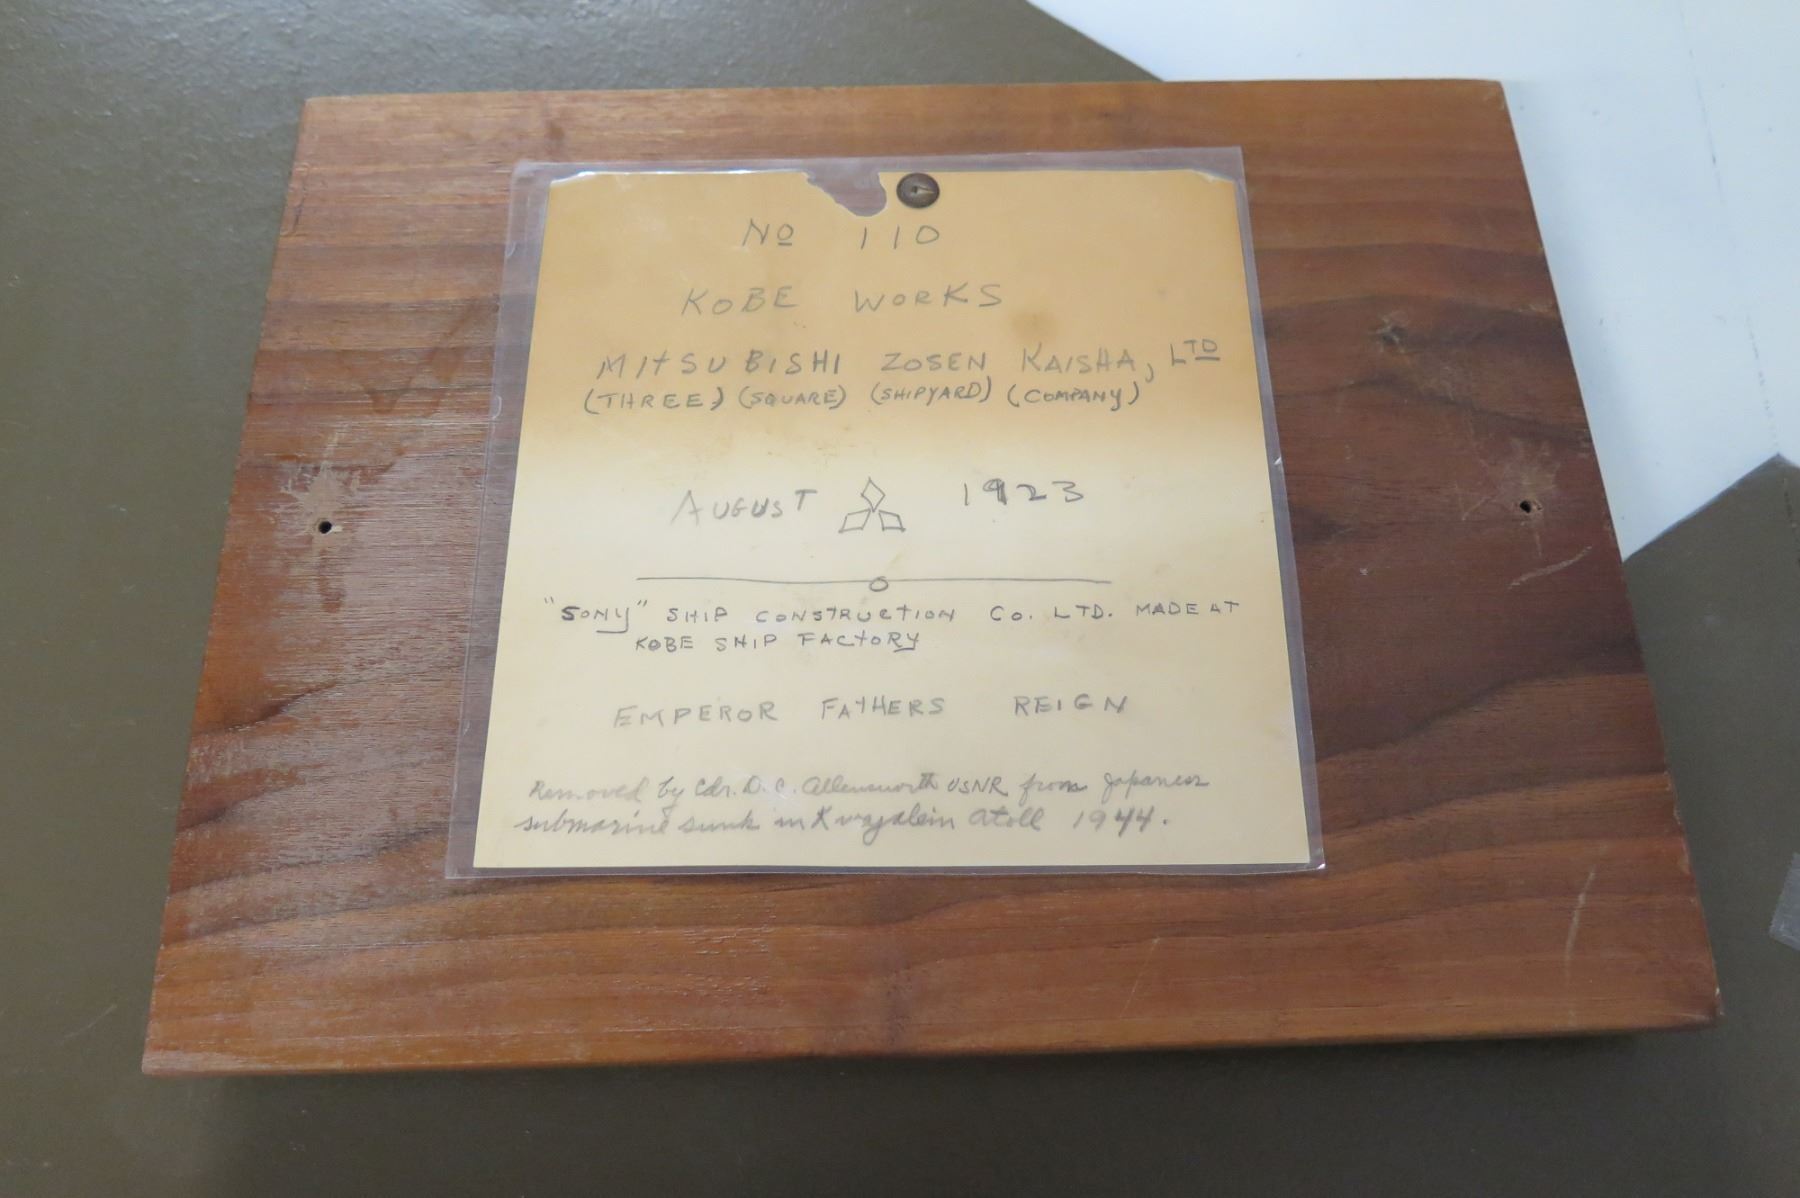 No 110
KOBE WORKS
MITSUBISHI ZOSEN KAISHA, LTD
(THREE) (SQUARE) (SHIPYARD) (COMPANY)
AUGUST 1923
"SONY" SHIP CONSTRUCTION Co. LTD. MADE AT
KOBE SHIP FACTORY
EMPEROR FATHERS REIGN
Removed by Cdr. D. C. Allensworth USNR from Japanese
submarine sunk in Kwajalein Atoll 1944.